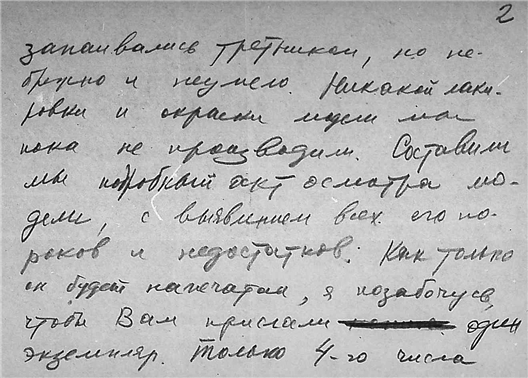 2
запаивались третником, но не-
брежно и неумело. Никакой лаки-
ровки и окраски модели мы
пока не производим. Составили
мы подробный акт осмотра мо-
дели, с выявлением всех его по-
роков и недостатков. Как только
он будет напечатан, я позабочусь,
чтобы Вам прислали один
экземпляр. Только 4-го числа